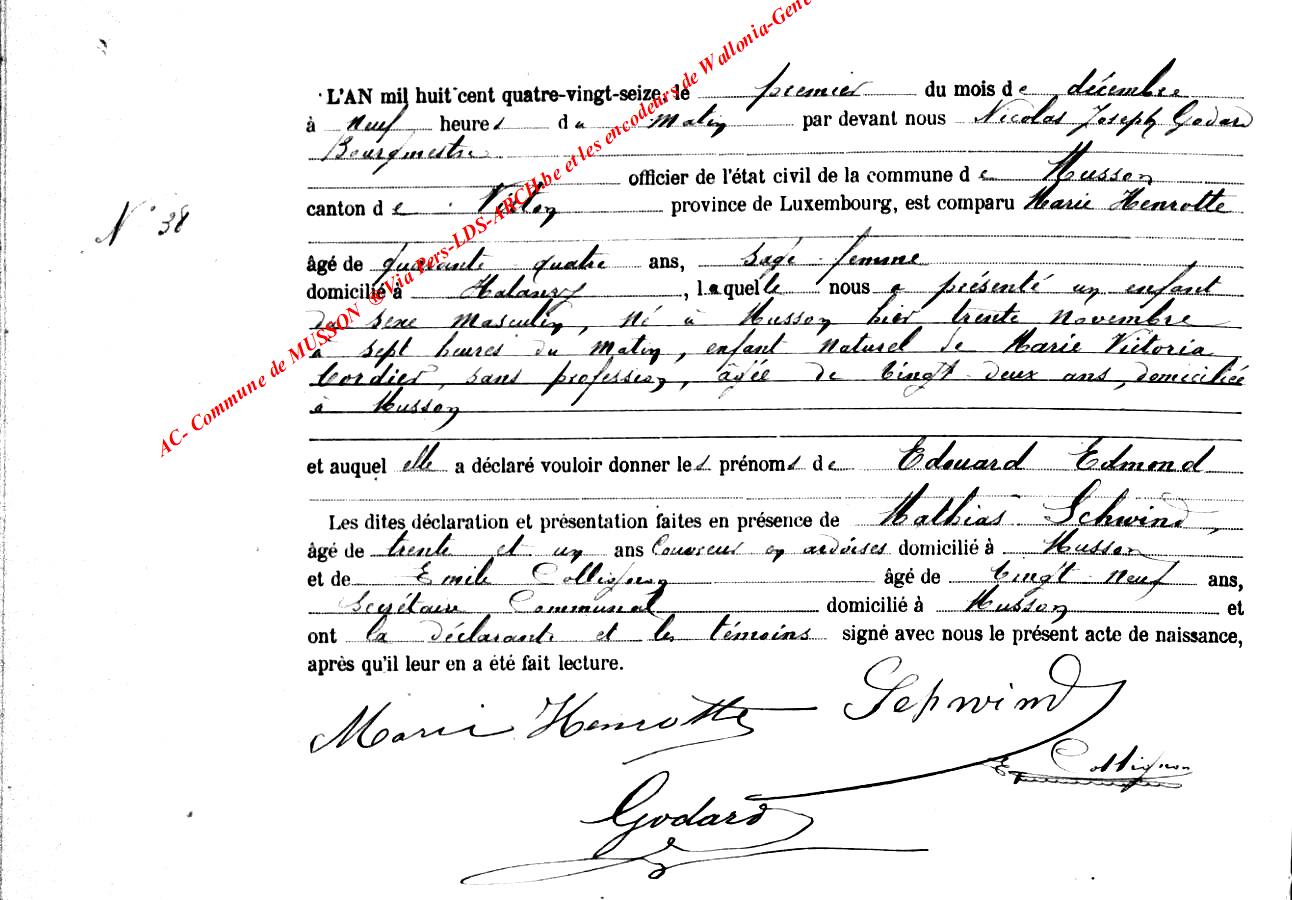 L'AN mil huit cent quatre-vingt-seize, le premier du mois de décembre
à neuf heures du Matin par devant nous Nicolas Joseph Godard
Bourgmestre
officier de l'état civil de la commune de Musson
N° 38
canton de Virton province de Luxembourg, est comparu Marie Henrotte
âgé de quarante quatre ans, sage femme
domicilié à Halanzy, laquelle nous a présenté un enfant
du sexe masculin, né à Musson hier trente novembre
à sept heures du matin, enfant naturel de Marie Victoria
Cordier, sans profession, âgée de vingt deux ans, domiciliée
à Musson
et auquel elle a déclaré vouloir donner les prénoms de Edouard Edmond
Les dites déclaration et présentation faites en présence de Mathias Schwind,
âgé de trente et un ans Couvreur en ardoises domicilié à Musson
et de Emile Collignon âgé de vingt neuf ans,
Secrétaire Communal domicilié à Musson et
ont la déclarante et les témoins signé avec nous le présent acte de naissance,
après qu'il leur en a été fait lecture.
Marie Henrotte Schwind
E Collignon
Godard
AC- Commune de MUSSON ®Via Pers-LDS-ARCH.be et les encodeurs de Wallonia-Gene